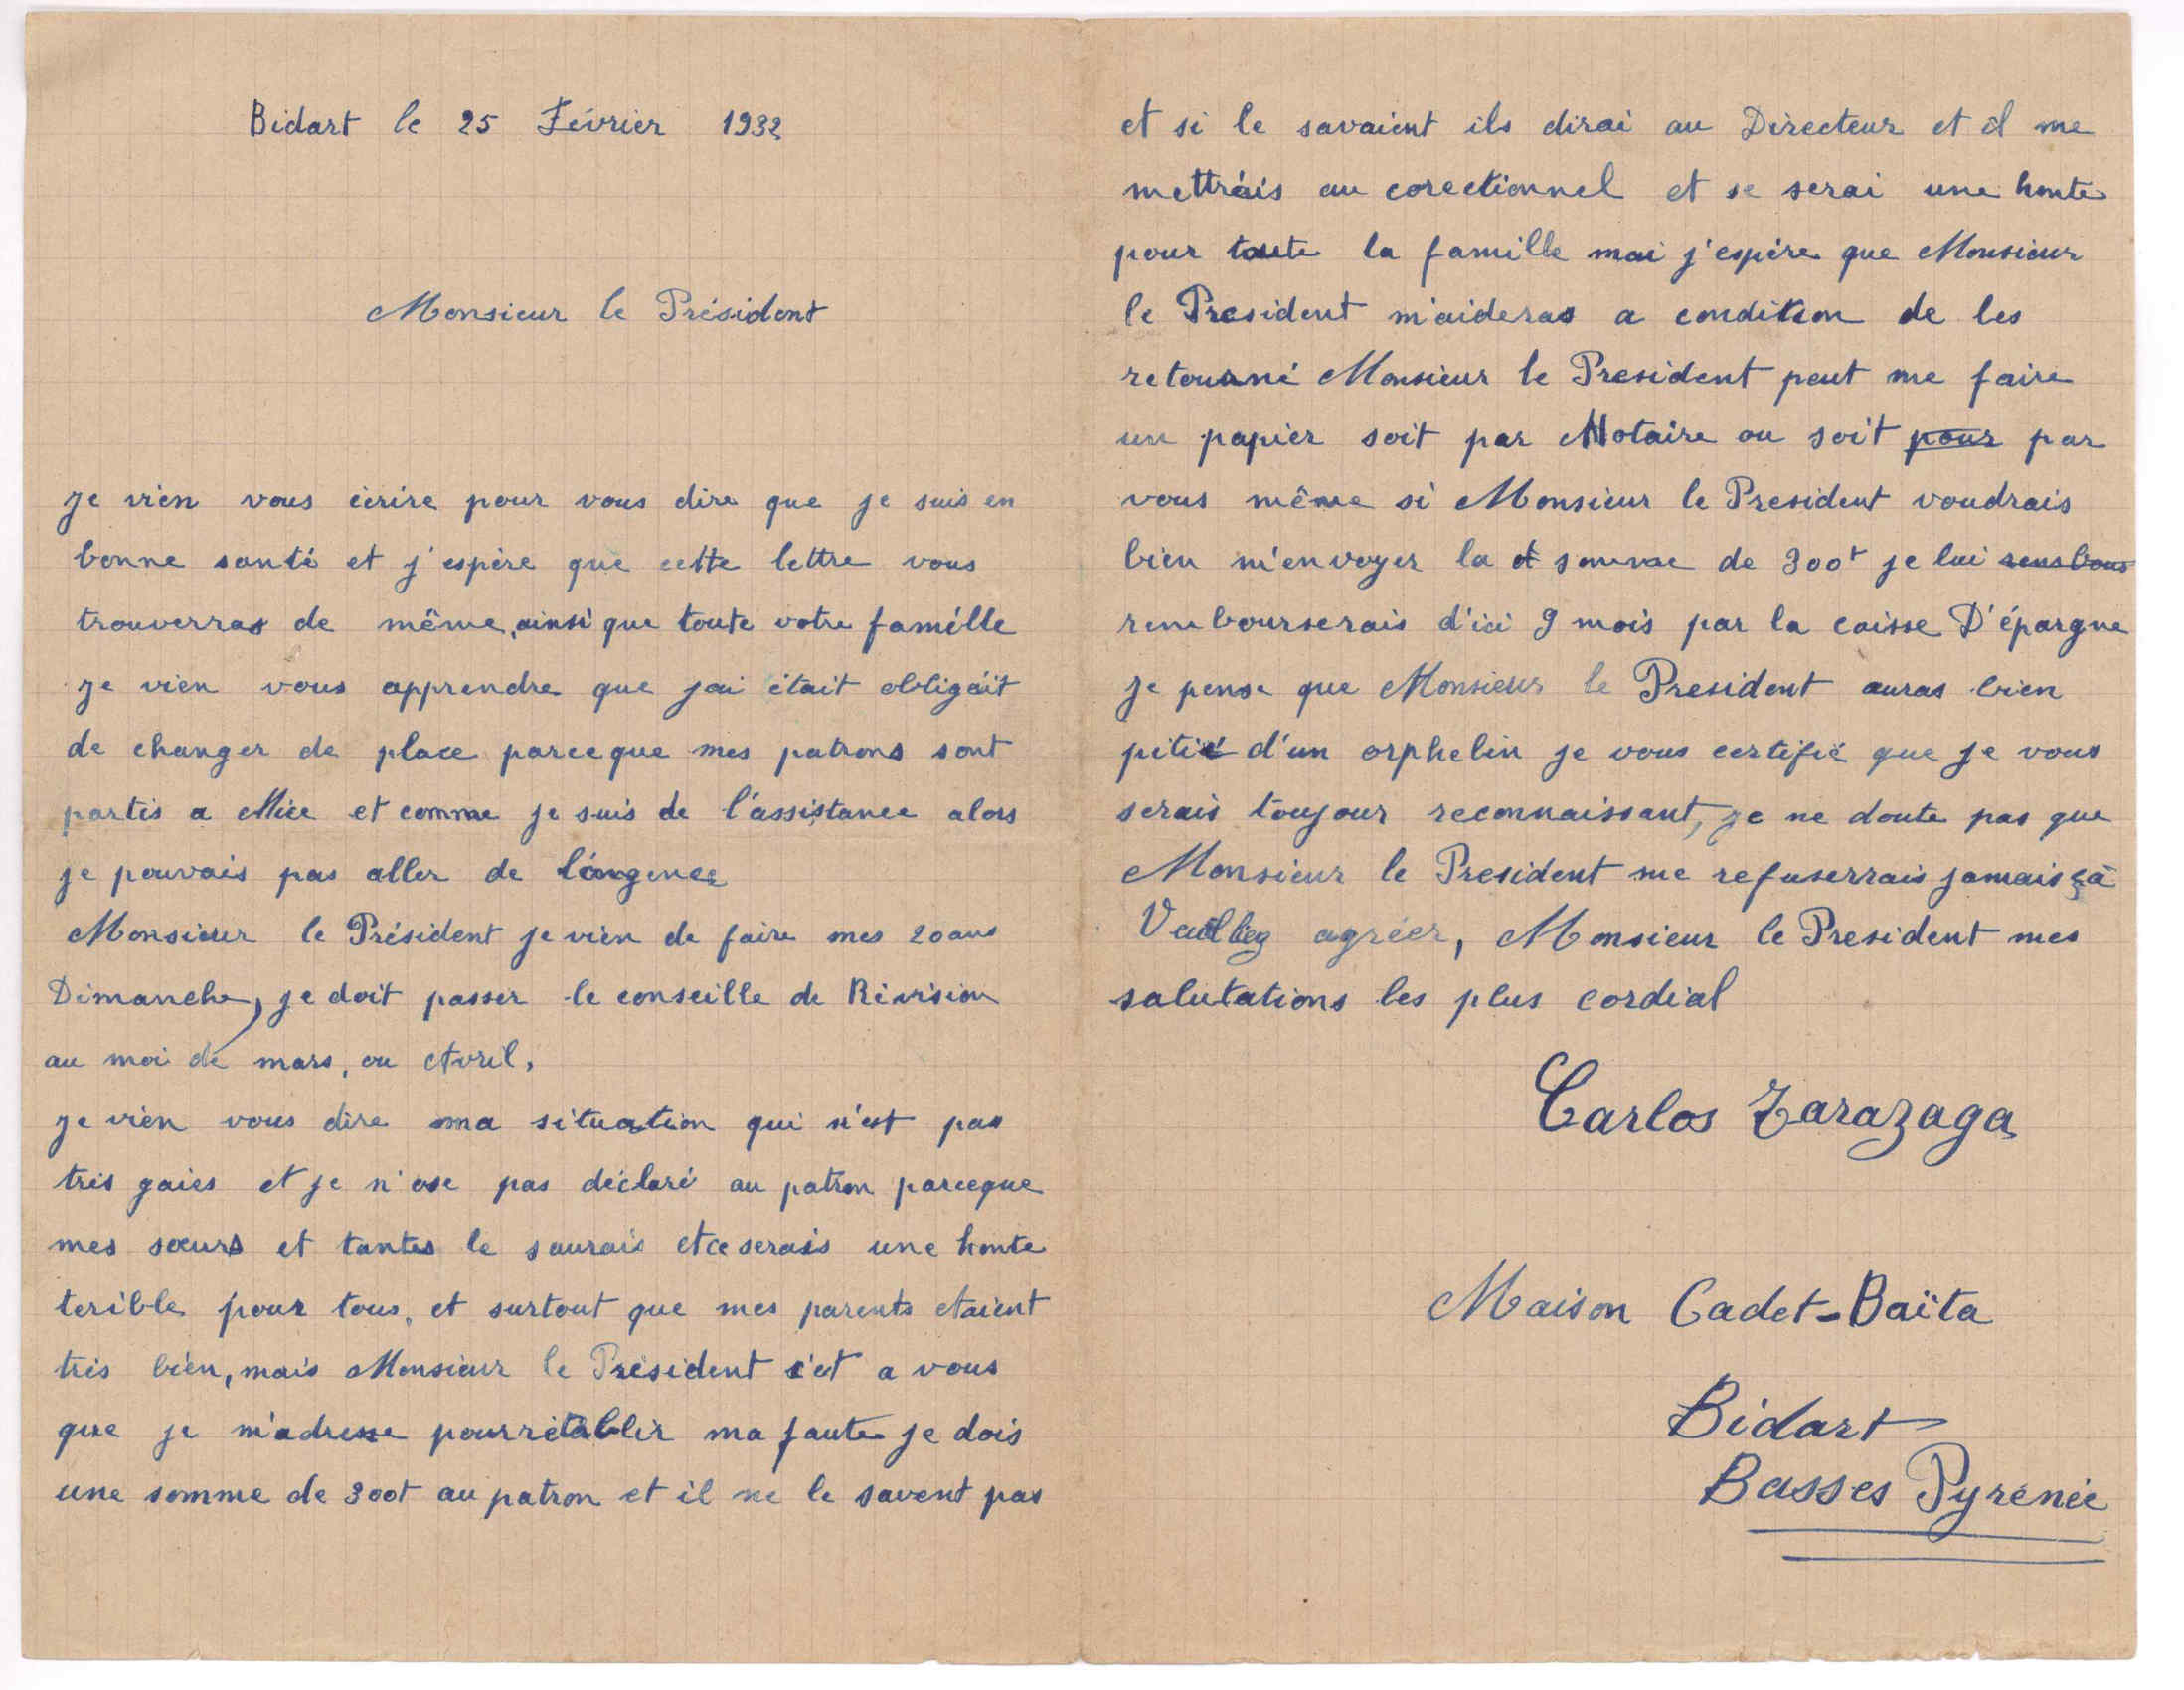 Bidart le 25 Février 1932
Monsieur le Président
je vien vous écrire pour vous dire que je suis en
bonne santé et j'espère que cette lettre vous
trouverras de même, ainsi que toute votre famille
je vien vous apprendre que jai était obligait
de changer de place parceque mes patrons sont
partis a Nice et comme je suis de l'assistance alors
je pouvais pas aller de l'angence
Monsieur le Président je vien de faire mes 20 ans
Dimanche, je doit passer le conseille de Révision
au moi de mars, ou Avril,
je vien vous dire ma situation qui n'est pas
très gaies et je n'ose pas déclaré au patron parceque
mes sœurs et tantes le saurais et ce serais une honte
terible pour tous, et surtout que mes parents etaient
très bien, mais Monsieur le Président c'et a vous
que je m'adresse pour rétablir ma faute je dois
une somme de 300f au patron et il ne le savent pas
et si le savaient ils dirai au Directeur et il me
mettrais au corectionnel et se serai une honte
pour toute la famille mai j'espère que Monsieur
le President m'aideras a condition de les
retourné Monsieur le President peut me faire
un papier soit par Notaire ou soit pour par
vous même si Monsieur le President voudrais
bien m'envoyer la somme de 300f je lui
rembourserais d'ici 9 mois par la caisse D'épargne
je pense que Monsieur le President auras bien
pitié d'un orphelin je vous certifié que je vous
serais toujour reconnaissant, je ne doute pas que
Monsieur le President me refuserrais jamais ça
Veuillez agréer, Monsieur le President mes
salutations les plus cordial
Carlos Zarazaga
Maison Cadet-Baïta
Bidart
Basses Pyrénée